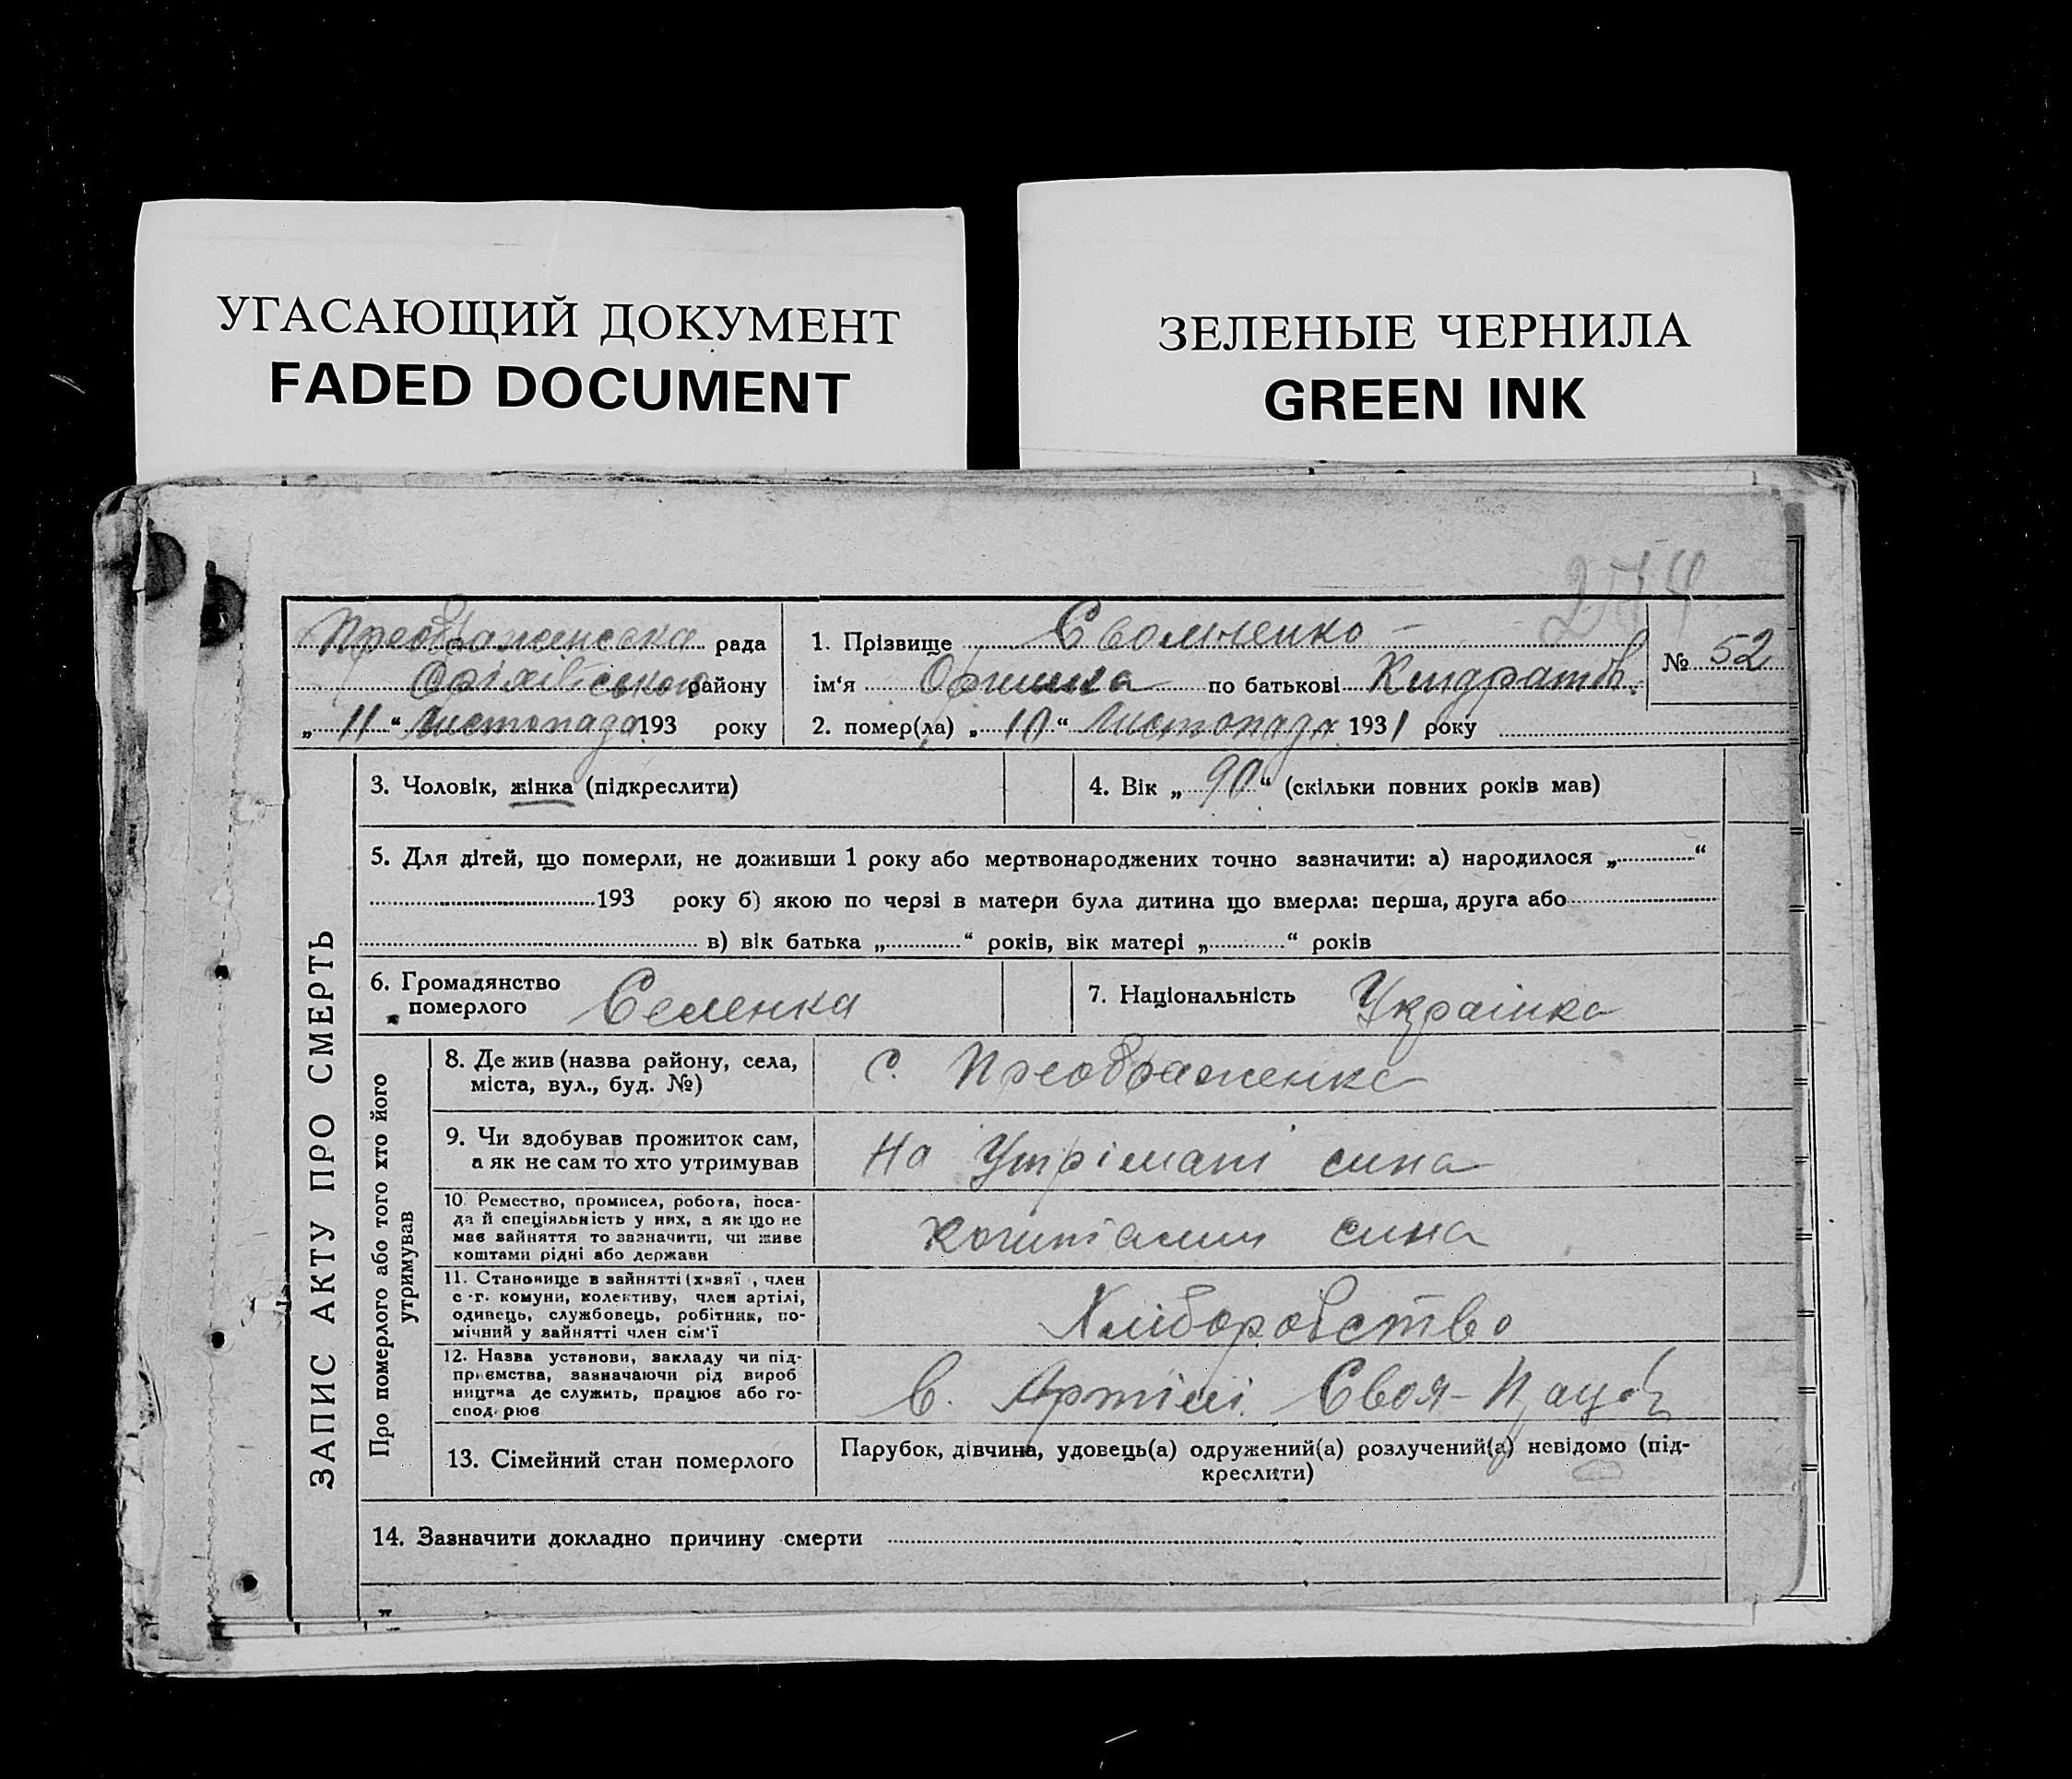 УГАСАЮЩИЙ ДОКУМЕНТ
FADED DOCUMENT
ЗЕЛЕНЫЕ ЧЕРНИЛА
GREEN INK
274
Преображенська рада
Оріхівського району
„ 11 “ Листопада 193 року
1. Прізвище
ім‘я Оришка по батькові Кіндратів.
2. помер(ла) „ 10 “ Листопада 1931 року
№ 52
ЗАПИС АКТУ ПРО СМЕРТЬ
3. Чоловік, жінка (підкреслити)
4. Вік „ 90 “ (скільки повних років мав)
5. Для дітей, що померли, не доживши 1 року або мертвонароджених точно зазначити: а) народилося „ “
193 року б) якою по черзі в матери була дитина що вмерла: перша, друга або
в) вік батька „ “ років, вік матері „ “ років
6. Громадянство
померлого Селенка
7. Національність Українка
Про померлого або того хто його
утримував
8. Де жив (назва району, села,
міста, вул., буд. №)
с. Преображенке
9. Чи здобував прожиток сам,
а як не сам то хто утримував
На Утрімані сина
10. Ремество, промисел, робота, поса-
да й спеціяльність у них, а як що не
має зайняття то зазначити, чи живе
коштами рідні або держави
коштами сина
11. Становище в зайнятті (х , член
с.-г. комуни, колективу, член артілі,
одинець, службовець, робітник, по-
мічний у зайнятті член сім‘ї
Хліборобство
12. Назва установи, закладу чи під-
приємства, зазначаючи рід вироб
ництва де служить, працює або го-
сподорює
в. Артілі Своя-Праця
13. Сімейний стан померлого
Парубок, дівчина, удовець(а) одружений(а) розлучений(а) невідомо (під-
креслити)
14. Зазначити докладно причину смерти